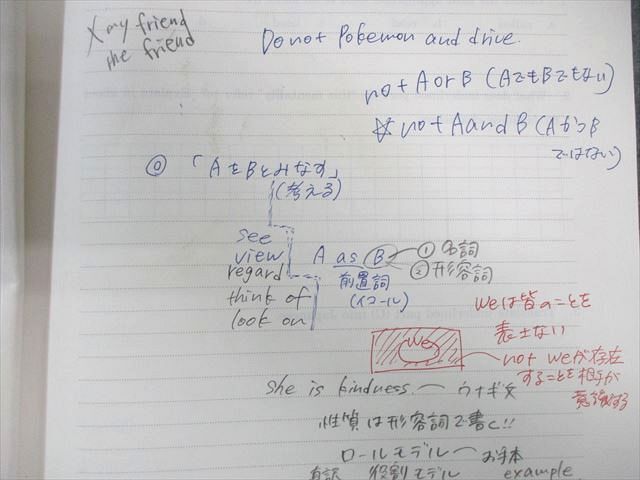 X my friend
the friend
Do not Pokemon and drive.
not A or B (AでもBでもない)
☆ not A and B (AかつB
ではない)
◎ 「AをBとみなす」
(考える)
see
view
regard
think of
look on
A as B
① 名詞
② 形容詞
前置詞
(イコール)
weは皆のことを
表さない
we
not weが存在
することを相手が
意識する
she is kindness. ー ウナギ文
性質は形容詞で書く!!
ロールモデル ー お手本
直訳 役割モデル example